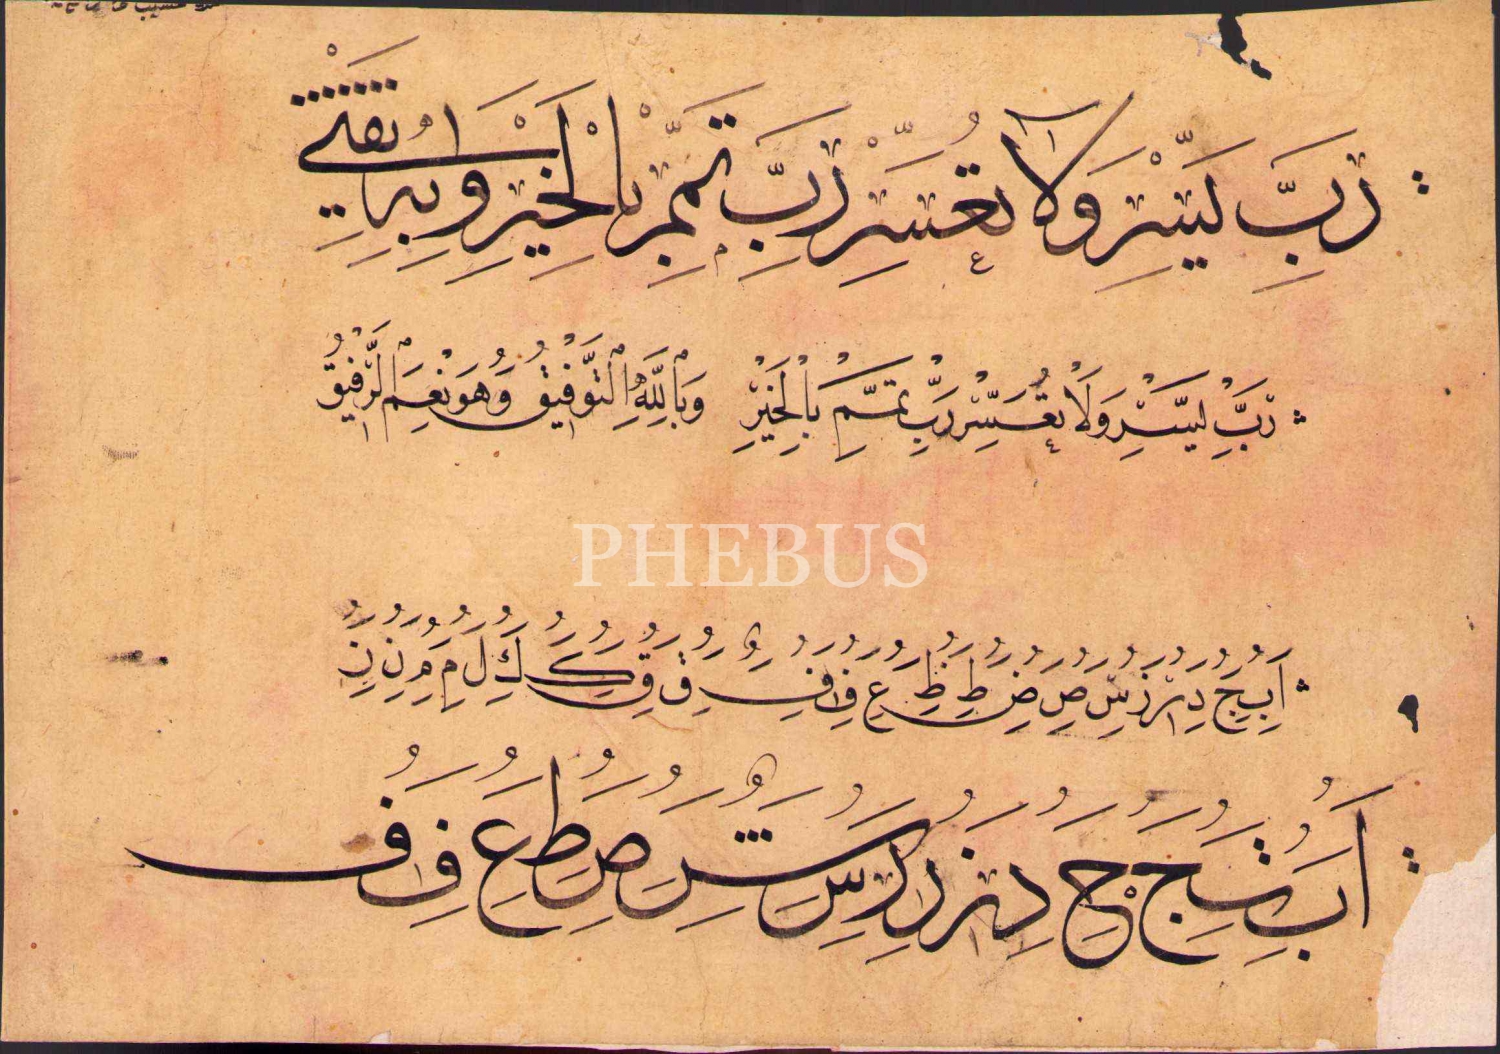 رَبِّ يَسِّرْ وَلَا تُعَسِّرْ رَبِّ تَمِّمْ بِالْخَيْرِ وَبِهِ ثِقَتِي
رَبِّ يَسِّرْ وَلَا تُعَسِّرْ رَبِّ تَمِّمْ بِالْخَيْرِ وَبِاللَّهِ التَّوْفِيقُ وَهُوَ نِعْمَ الرَّفِيقُ
PHEBUS
ا ب ج د ر ز س ص ض ط ظ ع ف ف ف ق ق ك ك ل م م ن ن
ا ب ت ج ح د ر ز ر س ش ص ط ع ف ف